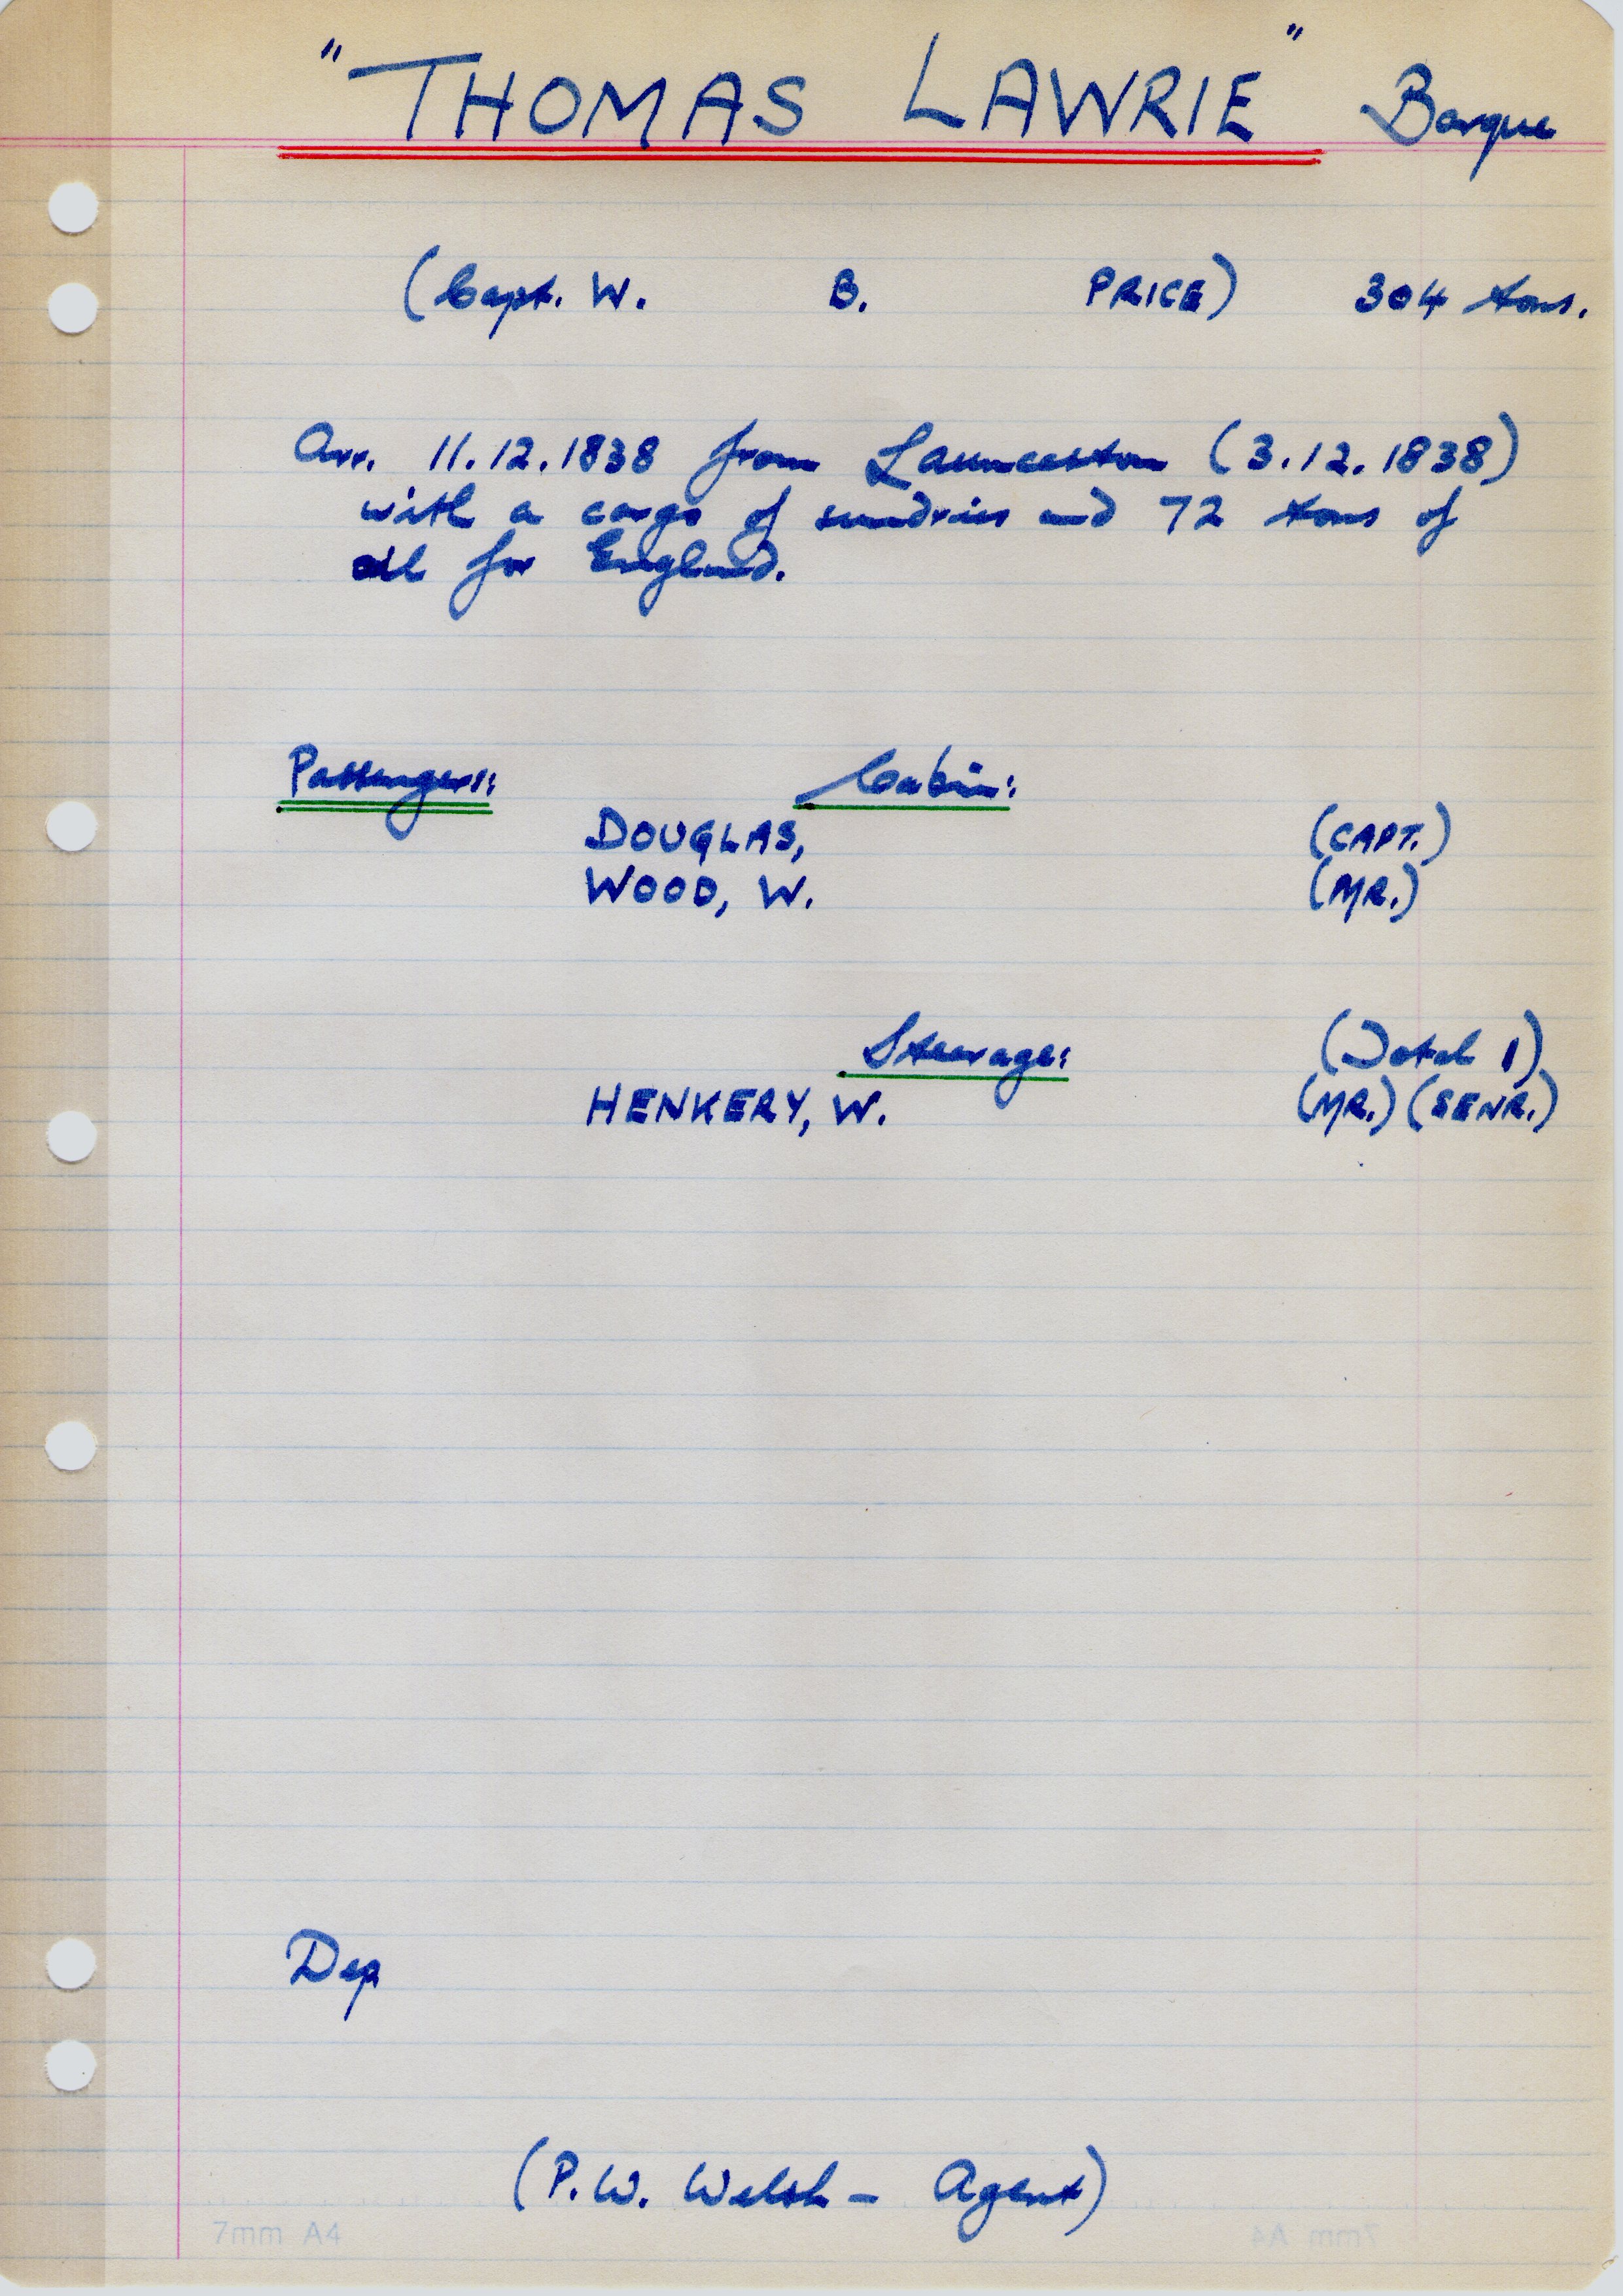 "THOMAS LAWRIE" Barque
(Capt. W. B. PRICE) 304 tons.
Arr. 11.12.1838 from Launceston (3.12.1838)
with a cargo of sundries and 72 tons of
oil for England.
Passengers: Cabin:
DOUGLAS, (CAPT.)
WOOD, W. (MR.)
Steerage: (Total 1)
HENKERY, W. (MR.) (SENR.)
Dep
(P.W. Welsh - Agent)
7mm A4 7mm A4